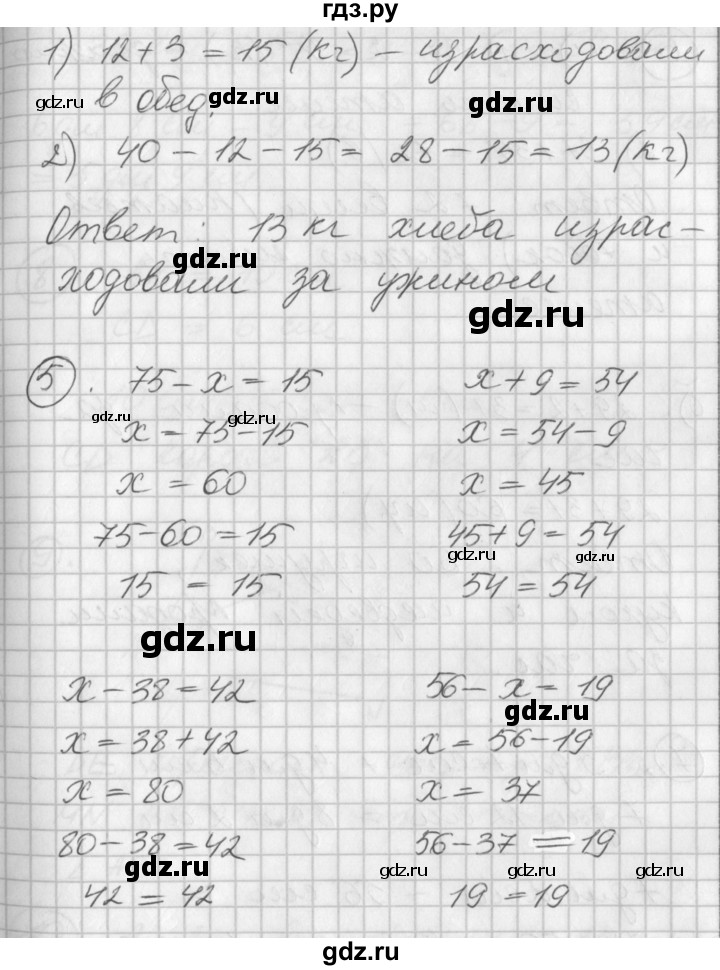 гдз.ру
1) 12 + 3 = 15 (кг) – израсходовали
gdz.ru в обед. gdz.ru gdz.ru
2) 40 – 12 – 15 = 28 – 15 = 13 (кг)
Ответ: 13 кг хлеба израс-
gdz.ru
ходовали за ужином
gdz.ru
5. 75 – x = 15 x + 9 = 54
gdz.ru gdz.ru
x = 75 – 15 x = 54 – 9
x = 60 x = 45
75 – 60 = 15 45 + 9 = 54
gdz.ru gdz.ru
15 = 15 54 = 54
gdz.ru
x – 38 = 42 56 – x = 19
gdz.ru
x = 38 + 42 x = 56 – 19
x = 80 x = 37
80 – 38 = 42 56 – 37 = 19
gdz.ru gdz.ru gdz.ru
42 = 42 19 = 19
gdz.ru